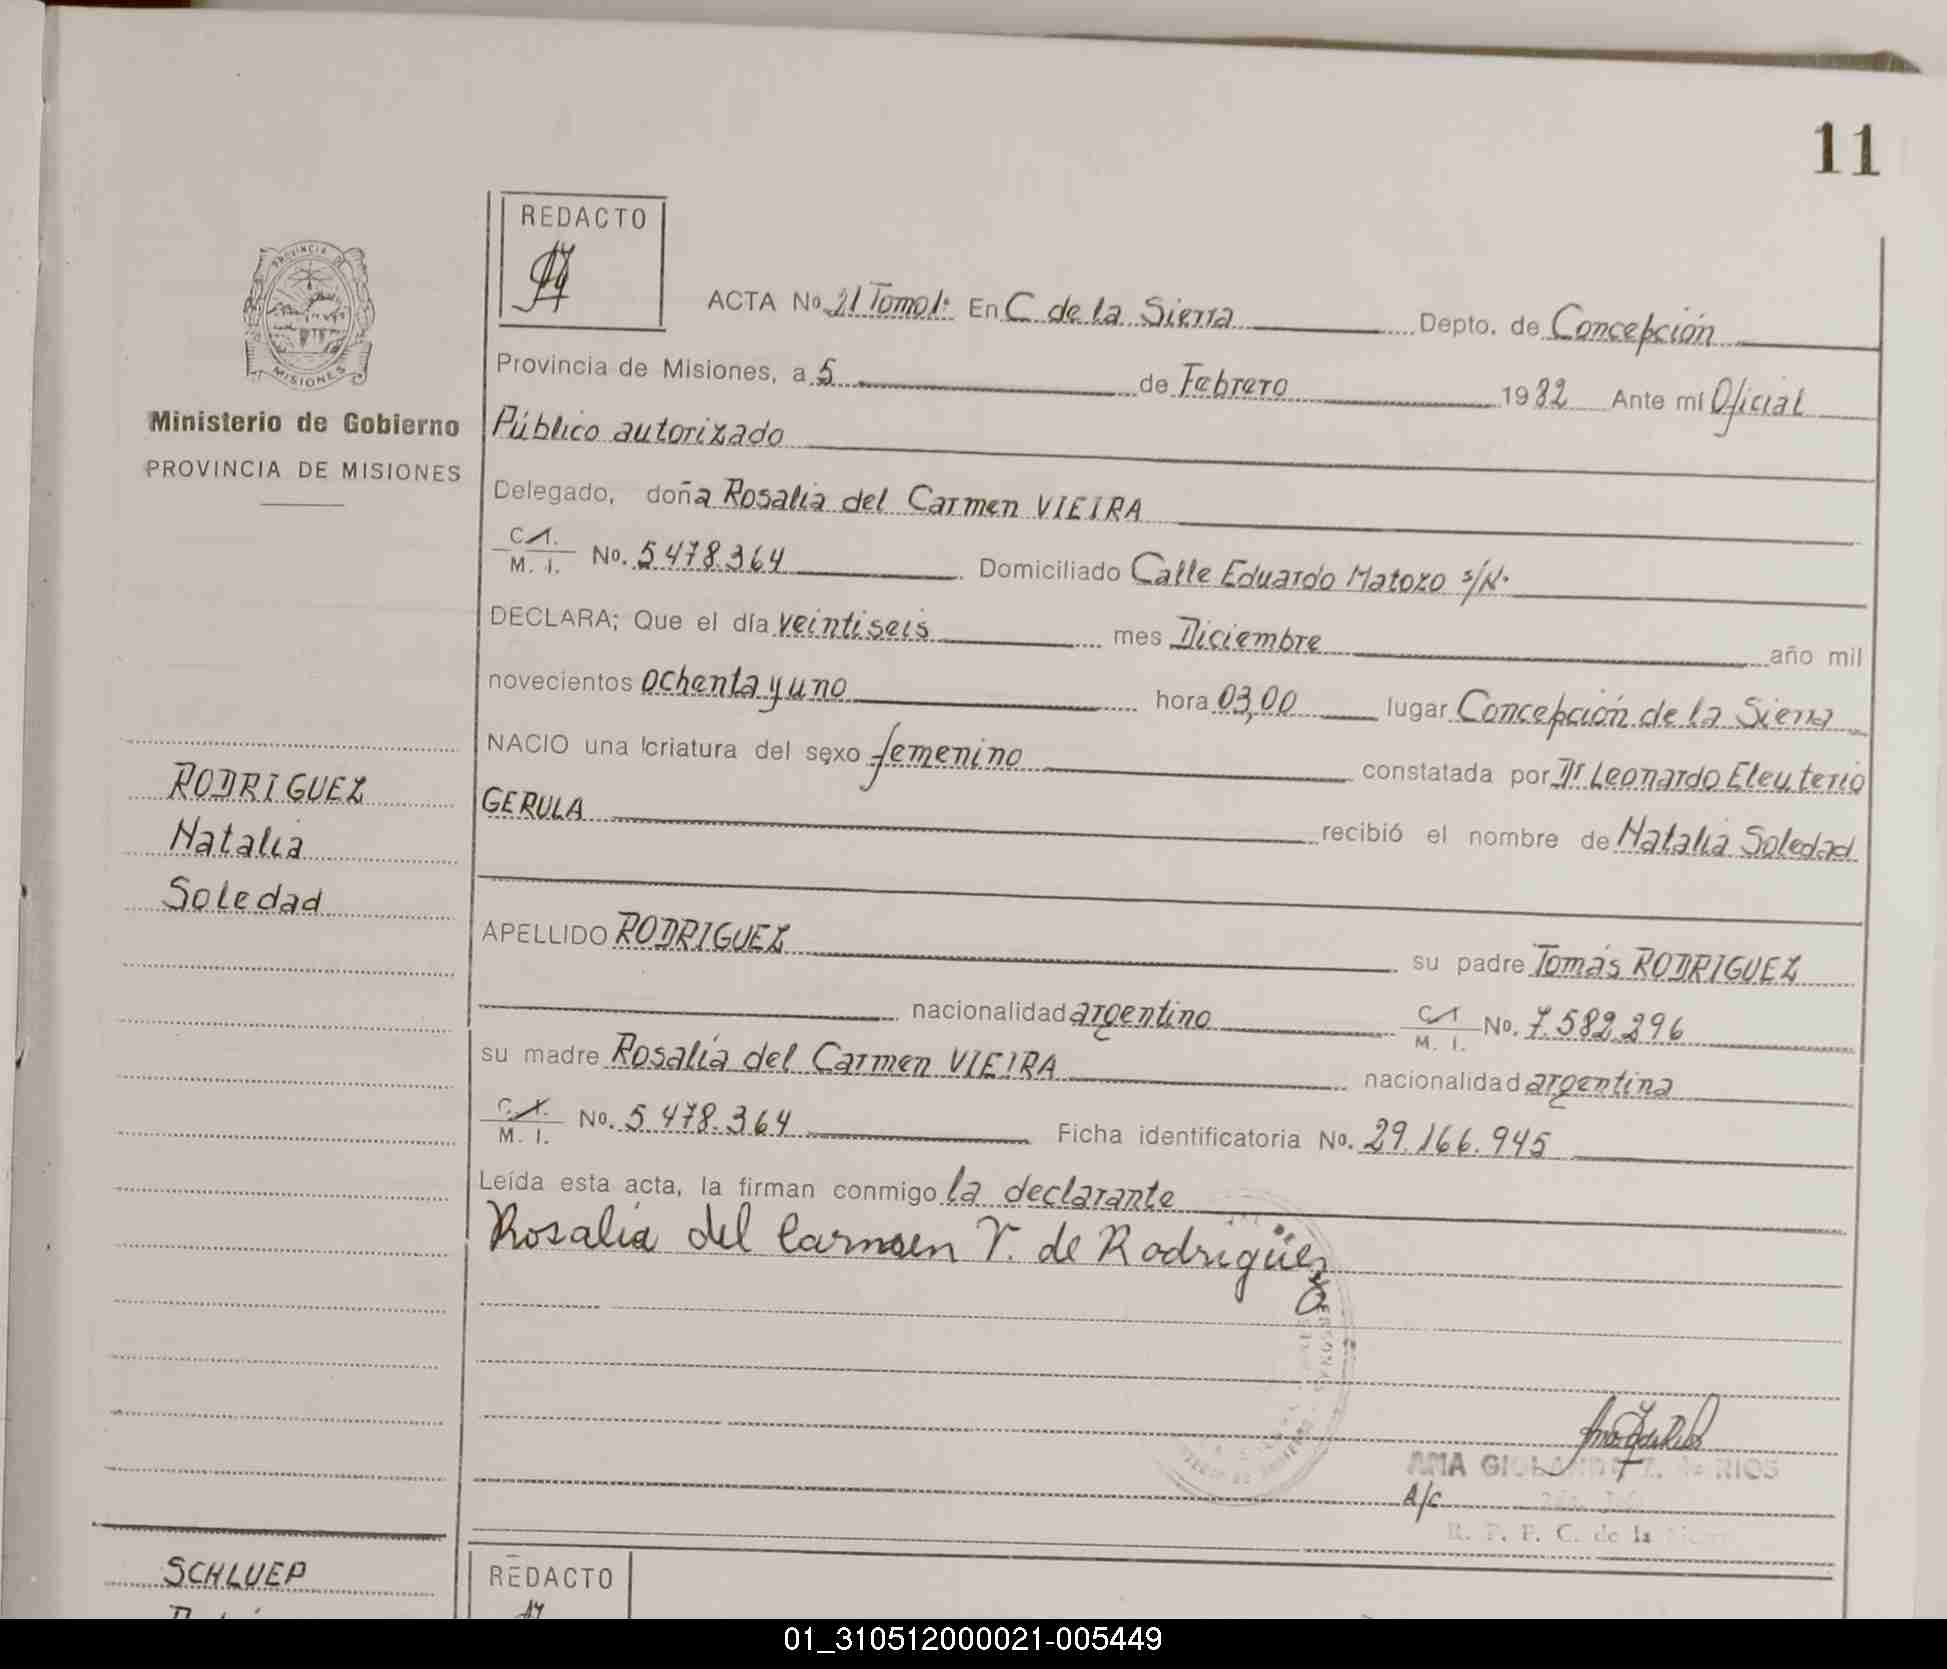 11
REDACTO
PROVINCIA DE
MISIONES
Ministerio de Gobierno
PROVINCIA DE MISIONES
ACTA No. 21 Tomo 1: En C de la Sierra Depto. de Concepción
Provincia de Misiones, a 5 de Febrero 1982 Ante mí Oficial
Público autorizado
Delegado, doña Rosalia del Carmen VIEIRA
C.I.
M. I. No. 5478.364 Domiciliado Calle Eduardo Matozo s/N.
DECLARA; Que el día veintiseis mes Diciembre año mil
novecientos ochenta y uno hora 03,00 lugar Concepción de la Sierra
NACIO una criatura del sexo femenino constatada por Dr Leonardo Eleuterio
GERULA recibió el nombre de Natalia Soledad
RODRIGUEZ
Natalia
Soledad
APELLIDO RODRIGUEZ su padre Tomás RODRIGUEZ
nacionalidad argentino C.I. M. I. No. 7.582.296
su madre Rosalía del Carmen VIEIRA nacionalidad argentina
C.I.
M. I. No. 5478.364 Ficha identificatoria No. 29.166.945
Leída esta acta, la firman conmigo la declarante
Rosalía del Carmen V. de Rodrigüez
ANA de RIOS
A/c
R. P. P. C. de la
SCHLUEP
REDACTO
01_310512000021-005449